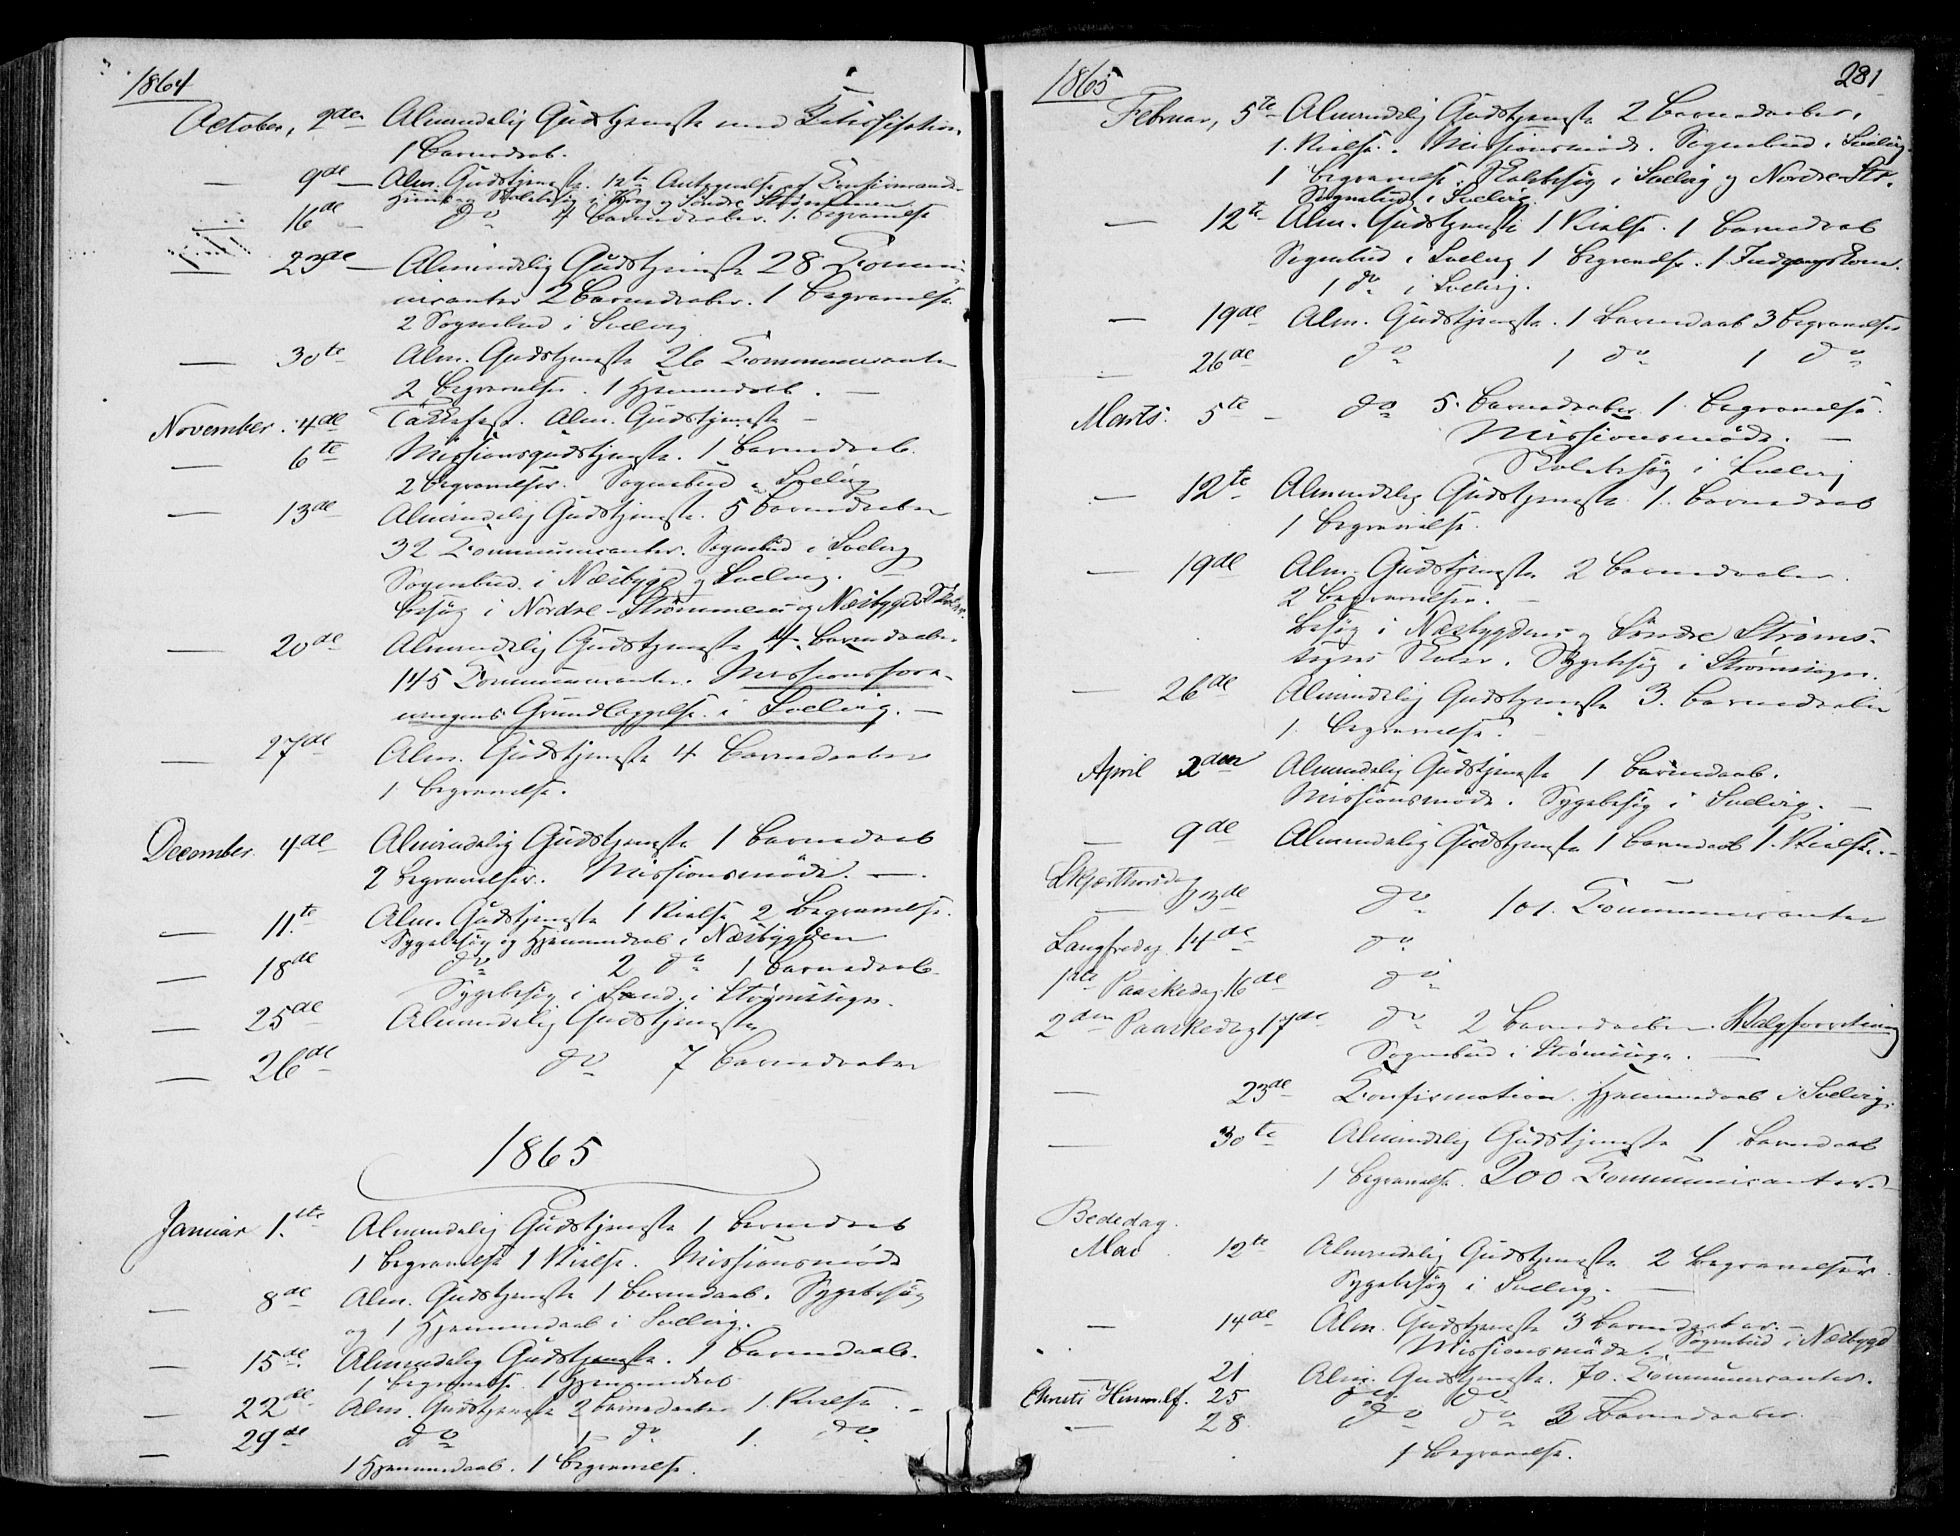 1864
October, 2den Almindelig Gudstjeneste med Katechisation
1 Barnedaab.
— 9de — Alm. Gudstjeneste. 12te Antegnelse af Confirmander
16de — do 4 Barnedaaber. 1 Begravelse
23de — Almindelig Gudstjeneste 28 Commu-
nicanter 2 Barnedaaber. 1 Begravelse
2 Sognebud i Svelvig
— 30te Alm. Gudstjeneste 26 Communicanter
2 Begravelser. 1 Hjemmedaab. —
November. 4de Takkefest. Alm. Gudstjeneste —
— 6te Missionsgudstjeneste. 1 Barnedaab.
2 Begravelser. Sognebud i Svelvig
— 13de Almindelig Gudstjeneste. 5 Barnedaaber
32 Communicanter. Sognebud i Svelvig
Sognebud i Næsbygd og Svelvig. —
besøg i Nordre-Strømmens og Næsbygds Skoler.
— 20de Almindelig Gudstjeneste 4. Barnedaaber.
145 Communicanter. Missionsfore-
ningens Grundlæggelse i Svelvig. —
— 27de Alm. Gudstjeneste 4 Barnedaaber
1 Begravelse.
December. 4de Almindelig Gudstjeneste 1 Barnedaab
2 Begravelser. Missionsmøde. —
— 11te Alm. Gudstjeneste 1 Vielse 2 Begravelser.
Sygebesøg og Hjemmedaab i Næsbygden
— 18de do 2 do 1 Barnedaab
Sygebesøg i Sand i Strømssogn.
— 25de Almindelig Gudstjeneste
— 26de do 7 Barnedaaber
1865
Januar 1.ste Almindelig Gudstjeneste 1 Barnedaab
1 Begravelse 1 Vielse. Missionsmøde
— 8de Alm. Gudstjeneste 1 Barnedaab. Sygebesøg
og 1 Hjemmedaab i Svelvig. —
— 15de Almindelig Gudstjeneste. 1 Barnedaab.
1 Begravelse. 1 Hjemmedaab
— 22de Alm. Gudstjeneste 2 Barnedaaber 1. Vielse. —
— 29de do 1 do 1. do
1 Hjemmedaab. 1 Begravelse.
1865 281
Februar, 5te Almindelig Gudstjeneste 2 Barnedaaber.
1. Vielse. Missionsmøde. Sognebud i Svelvig.
1 Begravelse. Skolebesøg i Svelvig og Nordre-Str.
Sognebud i Svelvig.
— 12te Alm. Gudstjeneste 1 Vielse. 1 Barnedaab
Sognebud i Svelvig 1 Begravelse. 1 Indgangskone.
1 do i Svelvig.
— 19de Alm. Gudstjeneste. 1 Barnedaab 3 Begravelser
— 26de do 1 do 1 do
Marts. 5te — do 5. Barnedaaber 1. Begravelse.
Missionsmøde. —
Skolebesøg i Svelvig
— 12te Almindelig Gudstjeneste 1. Barnedaab
1 Begravelse.
— 19de Alm. Gudstjeneste 2 Barnedaaber.
2 Begravelser. —
Besøg i Næsbygdens og Søndre Strøms-
sogns Skoler. Sygebesøg i Strømssogn.
— 26de Almindelig Gudstjeneste 3. Barnedaaber
1. Begravelse. —
April 2den Almindelig Gudstjeneste 1 Barnedaab.
Missionsmøde. Sygebesøg i Svelvig. —
— 9de Almindelig Gudstjeneste 1 Barnedaab 1. Vielse. —
Skjærthorsdag 13de do 101. Communicanter
Langfredag 14de do
1ste Paaskedag 16de do
2den Paaskedag 17de do 2 Barnedaaber. Valgforretning
Sognebud i Strømssogn. —
— 23de Confirmation. Hjemmedaab i Svelvig.
— 30te Almindelig Gudstjeneste 1 Barnedaab
1 Begravelse. 200 Communicanter. —
Bededag.
Mai 12te Almindelig Gudstjeneste 2 Begravelser.
Sygebesøg i Svelvig. —
— 14de Alm. Gudstjeneste 3 Barnedaaber. —
Missionsmøde. Sognebud i Næsbygd
— 21 Alm. Gudstjeneste. 70. Communicanter.
Christi Himmelf. 25 do do
— 28 do do 3 Barnedaaber.
1 Begravelse.